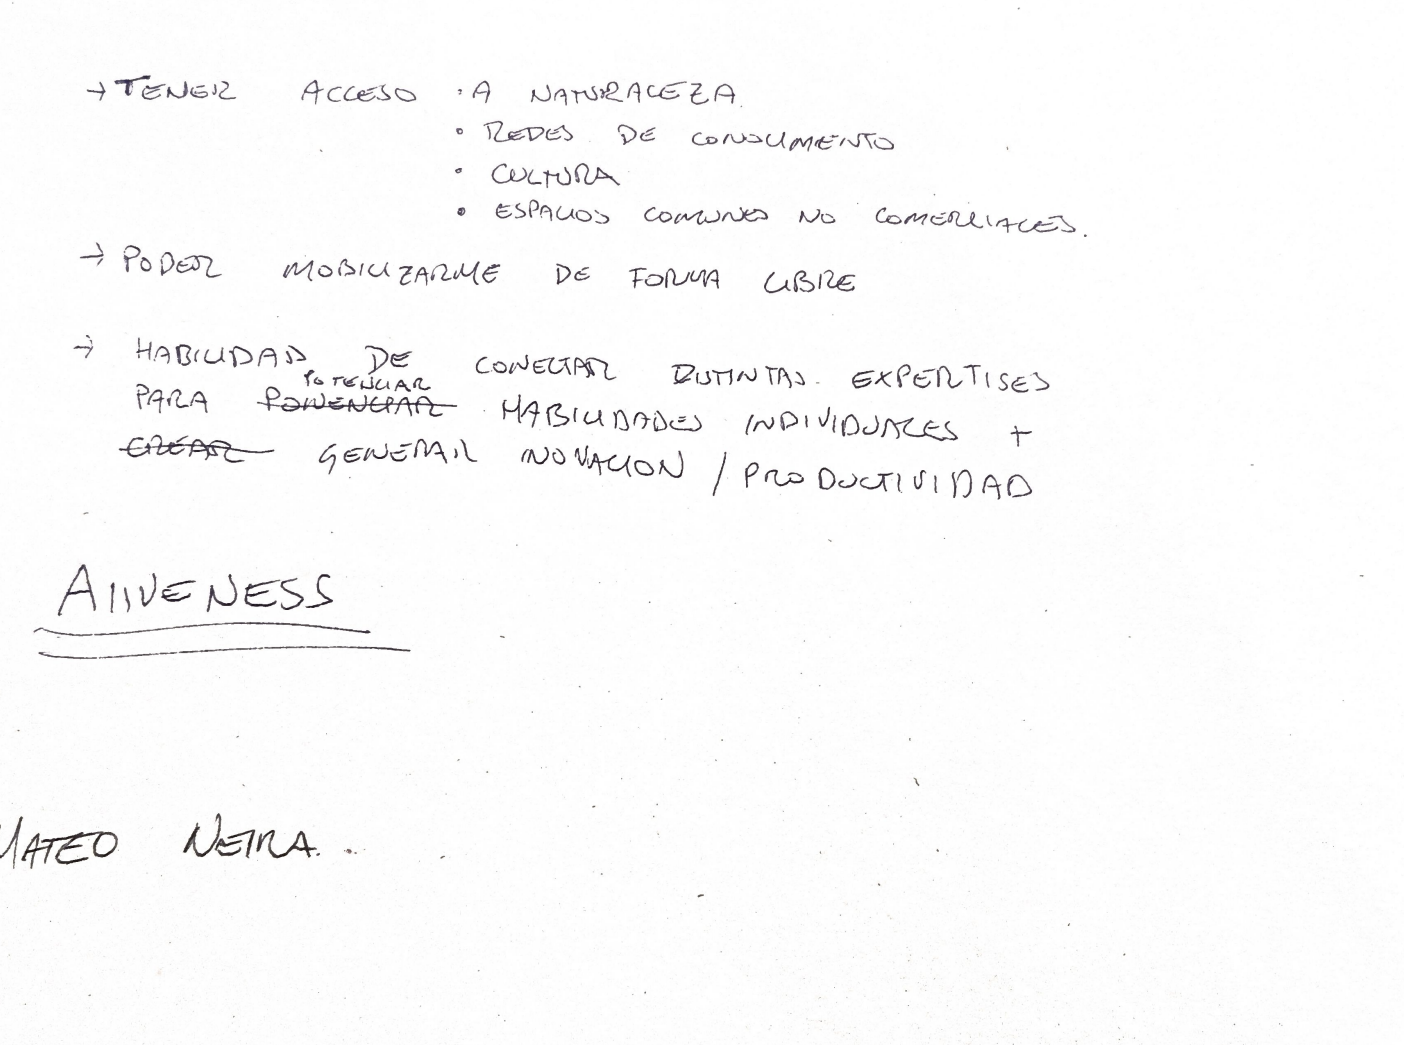 → TENER ACCESO · A NATURALEZA.
• REDES DE CONOCIMIENTO
• CULTURA
• ESPACIOS COMUNES NO COMERCIALES.
→ PODER MOBILIZARME DE FORMA LIBRE
→ HABILIDAD DE CONECTAR DISTINTAS EXPERTISES
POTENCIAR
PARA HABILIDADES INDIVIDUALES +
CREAR GENERAR INOVACION / PRODUCTIVIDAD
ALIVENESS
MATEO NEIRA.